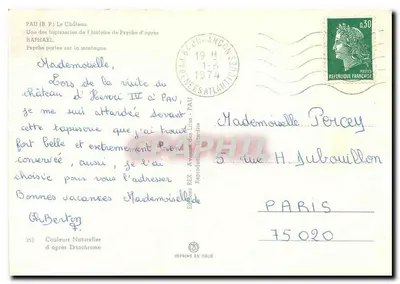 PAU (B. P.) Le Château
Une des tapisseries de l'histoire de Psyché d'après
RAPHAEL
Psyché portée sur la montagne
Mademoiselle,
Lors de la visite du
château d'Henri IV à Pau,
je me suis attardée devant
cette tapisserie que j'ai trouvé
fort belle et extrêmement bien
conservée, aussi, je l'ai
choisie pour vous l'adresser
Bonnes vacances Mademoiselle
de
Berton
Couleurs Naturelles
d'après Ektachrome
PAU
19 H
1974
PYRENEES ATLANTIQUES
0,30
REPUBLIQUE FRANÇAISE
Mademoiselle Percey
5 rue H. Dubouillon
PARIS
75020